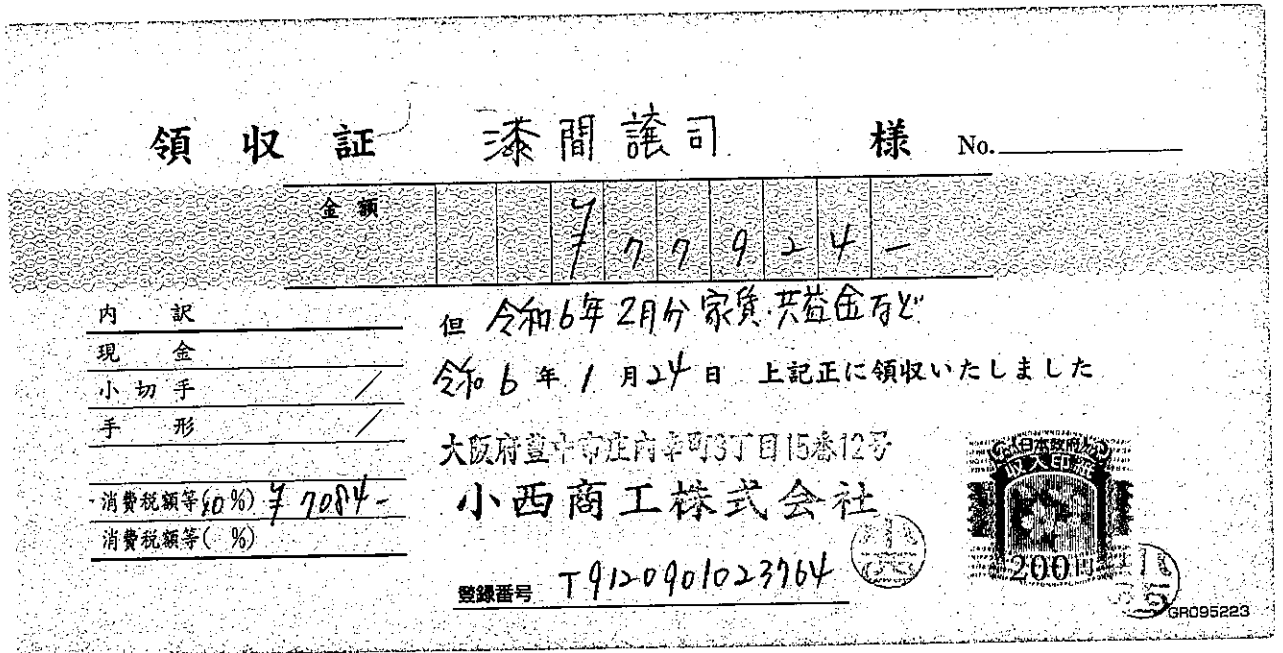 領収証 漆間譲司 様 No.
金額 ¥77924-
内訳
現金
小切手 /
手形 /
消費税額等(10%) ¥7084-
消費税額等( %)
但 令和6年2月分家賃.共益金など
令和6年1月24日 上記正に領収いたしました
大阪府豊中市庄内幸町3丁目15番12号
小西商工株式会社
登録番号 T9120901023764
日本政府
収入印紙
200円
GR095223